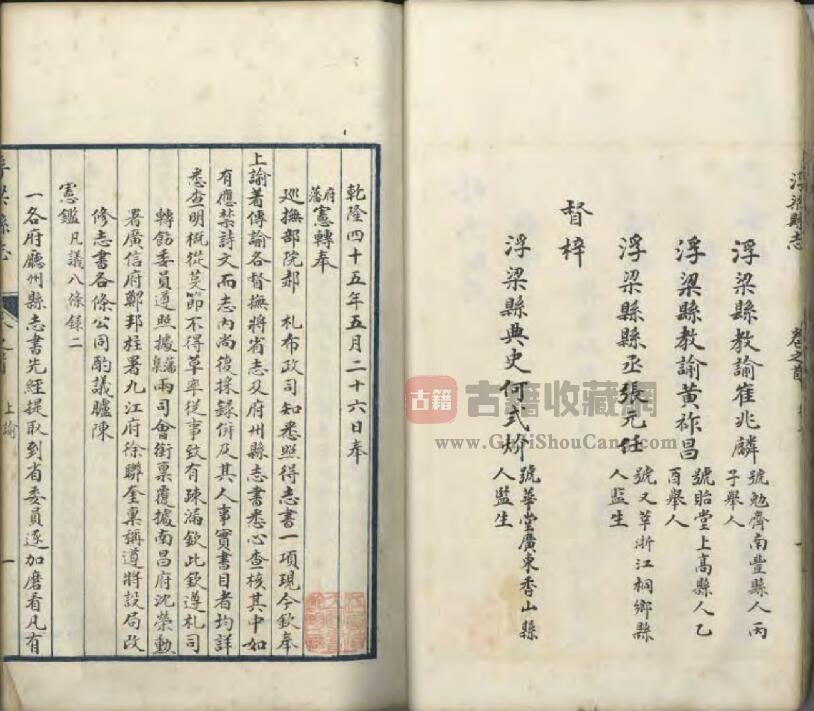 浮梁縣志
卷之首
浮梁縣教諭崔兆麟號勉齋南豐縣人丙子舉人
浮梁縣教諭黃祚昌號貽堂上高縣人乙酉舉人
浮梁縣縣丞張元任號又莘浙江桐鄉縣人監生
督梓
浮梁縣典史何式炌號華堂廣東香山縣人監生
乾隆四十五年五月二十六日奉
府藩憲轉奉
巡撫部院郝 札布政司知悉照得志書一項現今欽奉
上諭著傳諭各督撫將省志及府州縣志書悉心查核其中如
有應禁詩文而志內尚復採錄併及其人事實書目者均詳
悉查明概從芟節不得草率從事致有疎漏欽此欽遵札司
轉飭委員遵照據臬藩兩司會銜稟覆據南昌府沈榮勳
署廣信府鄭邦柱署九江府徐聯奎稟稱遵將設局改
修志書各條公同酌議臚陳
憲鑑凡議八條錄二
一各府廳州縣志書先經提取到省委員逐加磨看凡有
浮梁縣志
卷之首
上諭
一
古籍
古籍收藏网
www.GuJiShouCang.com